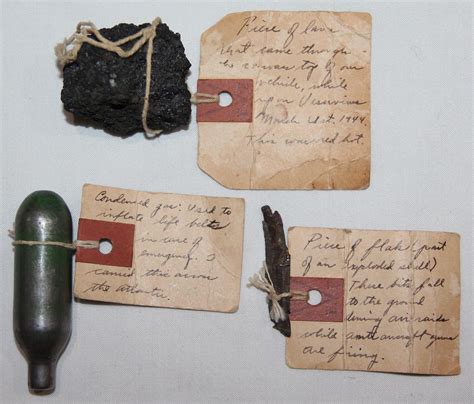 Piece of lava
that came through
the canvas top of our
vehicle, while
up on Vesuvius
March 21st. 1944.
This was red hot.
Condensed gas. Used to
inflate life belts
in case of
emergency. I
carried this across
the Atlantic.
Piece of flak (part
of an exploded shell)
These bits fall
to the ground
during air raids
while anti aircraft guns
are firing.